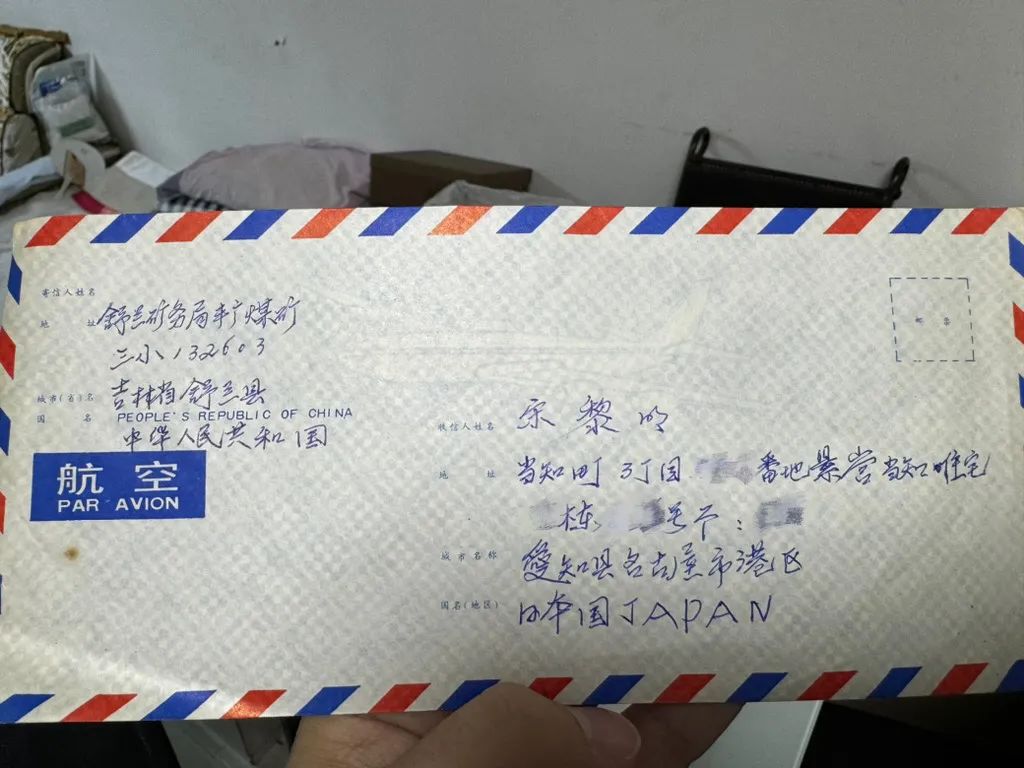 寄信人姓名
地 址 舒兰矿务局丰广煤矿
三小132603
城市(省)名 吉林省舒兰县
国 名 PEOPLE'S REPUBLIC OF CHINA
中华人民共和国
航空
PAR AVION
邮 票
收信人姓名 宋黎明
地 址 当知町 3丁目 番地県営当知住宅
栋 号
城市名称 愛知县名古屋市港区
国名(地区) 日本国JAPAN